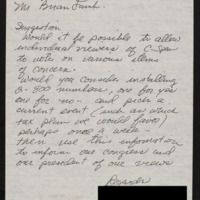 Mr Brian Lamb.
Suggestion
Would it be possible to allow
individual viewers of C-Span
to vote on various items
of concern.
Would you consider installing
2-800 numbers, one for yes
one for no - and pick a
current event (such as which
tax plan we would favor)
perhaps once a week -
then use this information
to inform our congress and
our president of our views